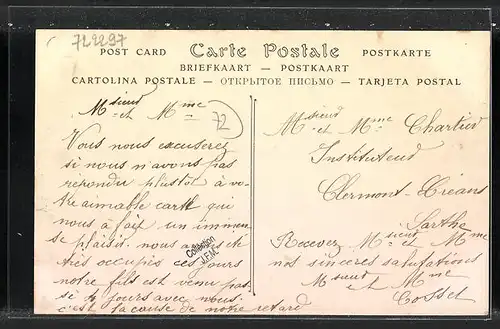 722297
POST CARD Carte Postale POSTKARTE
BRIEFKAART — POSTKAART
CARTOLINA POSTALE — ОТКРЫТОЕ ПИСЬМО — TARJETA POSTAL
Msieur et Mme
72
Vous nous excuserez
si nous n'avons pas
repondu plustot à vo-
tre aimable carte qui
nous à fait un immen
se plaisir. nous a
très occupés ces jours
notre fils est venu pas-
sé 4 jours avec nous.
c'est la cause de notre retard
Collection
J.F.M.
Msieur et Mme Chartier
Instituteur
Clermont-Créans
Sarthe
Recevez Msieur et Mme
nos sincères salutations
Msieur et Mme
Cosset